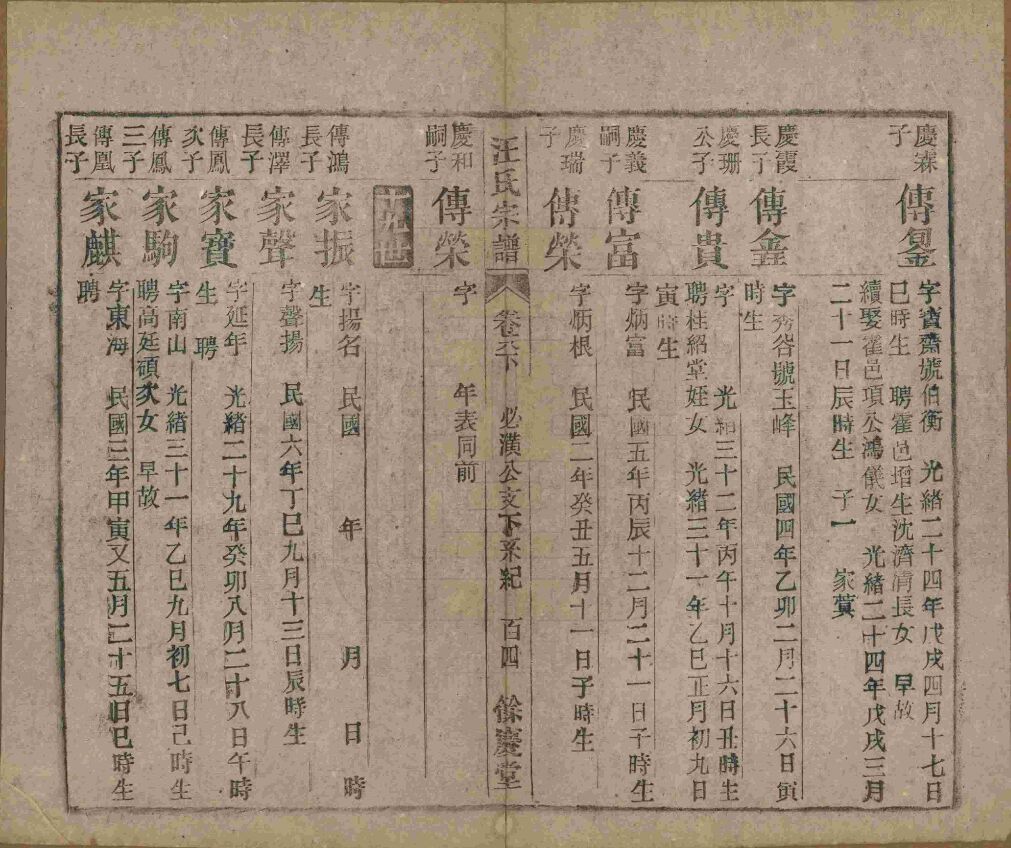 慶森
子
傳鋆
字寶齋號伯衡 光緒二十四年戊戌四月十七日
巳時生 聘霍邑增生沈濟清長女 早故
續娶霍邑項公鴻儀女 光緒二十四年戊戌三月
二十一日辰時生 子一 家蓂
慶霞
長子
傳鑫
字秀峇號玉峰 民國四年乙卯二月二十六日寅
時生
慶珊
公子
傳貴
字 光緒三十二年丙午十月十六日丑時生
聘桂紹堂姪女 光緒三十一年乙巳正月初九日
寅時生
慶義
嗣子
傳富
字炳富 民國五年丙辰十二月二十一日子時生
慶瑞
子
傳榮
字炳根 民國二年癸丑五月十一日子時生
汪氏宗譜
卷六下
必潢公支下系紀
百四
餘慶堂
慶和
嗣子
傳榮
字 年表同前
傳鴻
長子
家振
字揚名 民國 年 月 日 時
生
傳澤
長子
家聲
字聲揚 民國六年丁巳九月十三日辰時生
傳鳳
次子
家寶
字延年 光緒二十九年癸卯八月二十八日午時
生 聘
傳鳳
三子
家駒
字南山 光緒三十一年乙巳九月初七日己時生
聘高廷碩次女 早故
傳凰
長子
家麒
字東海 民國三年甲寅又五月二十五日巳時生
聘